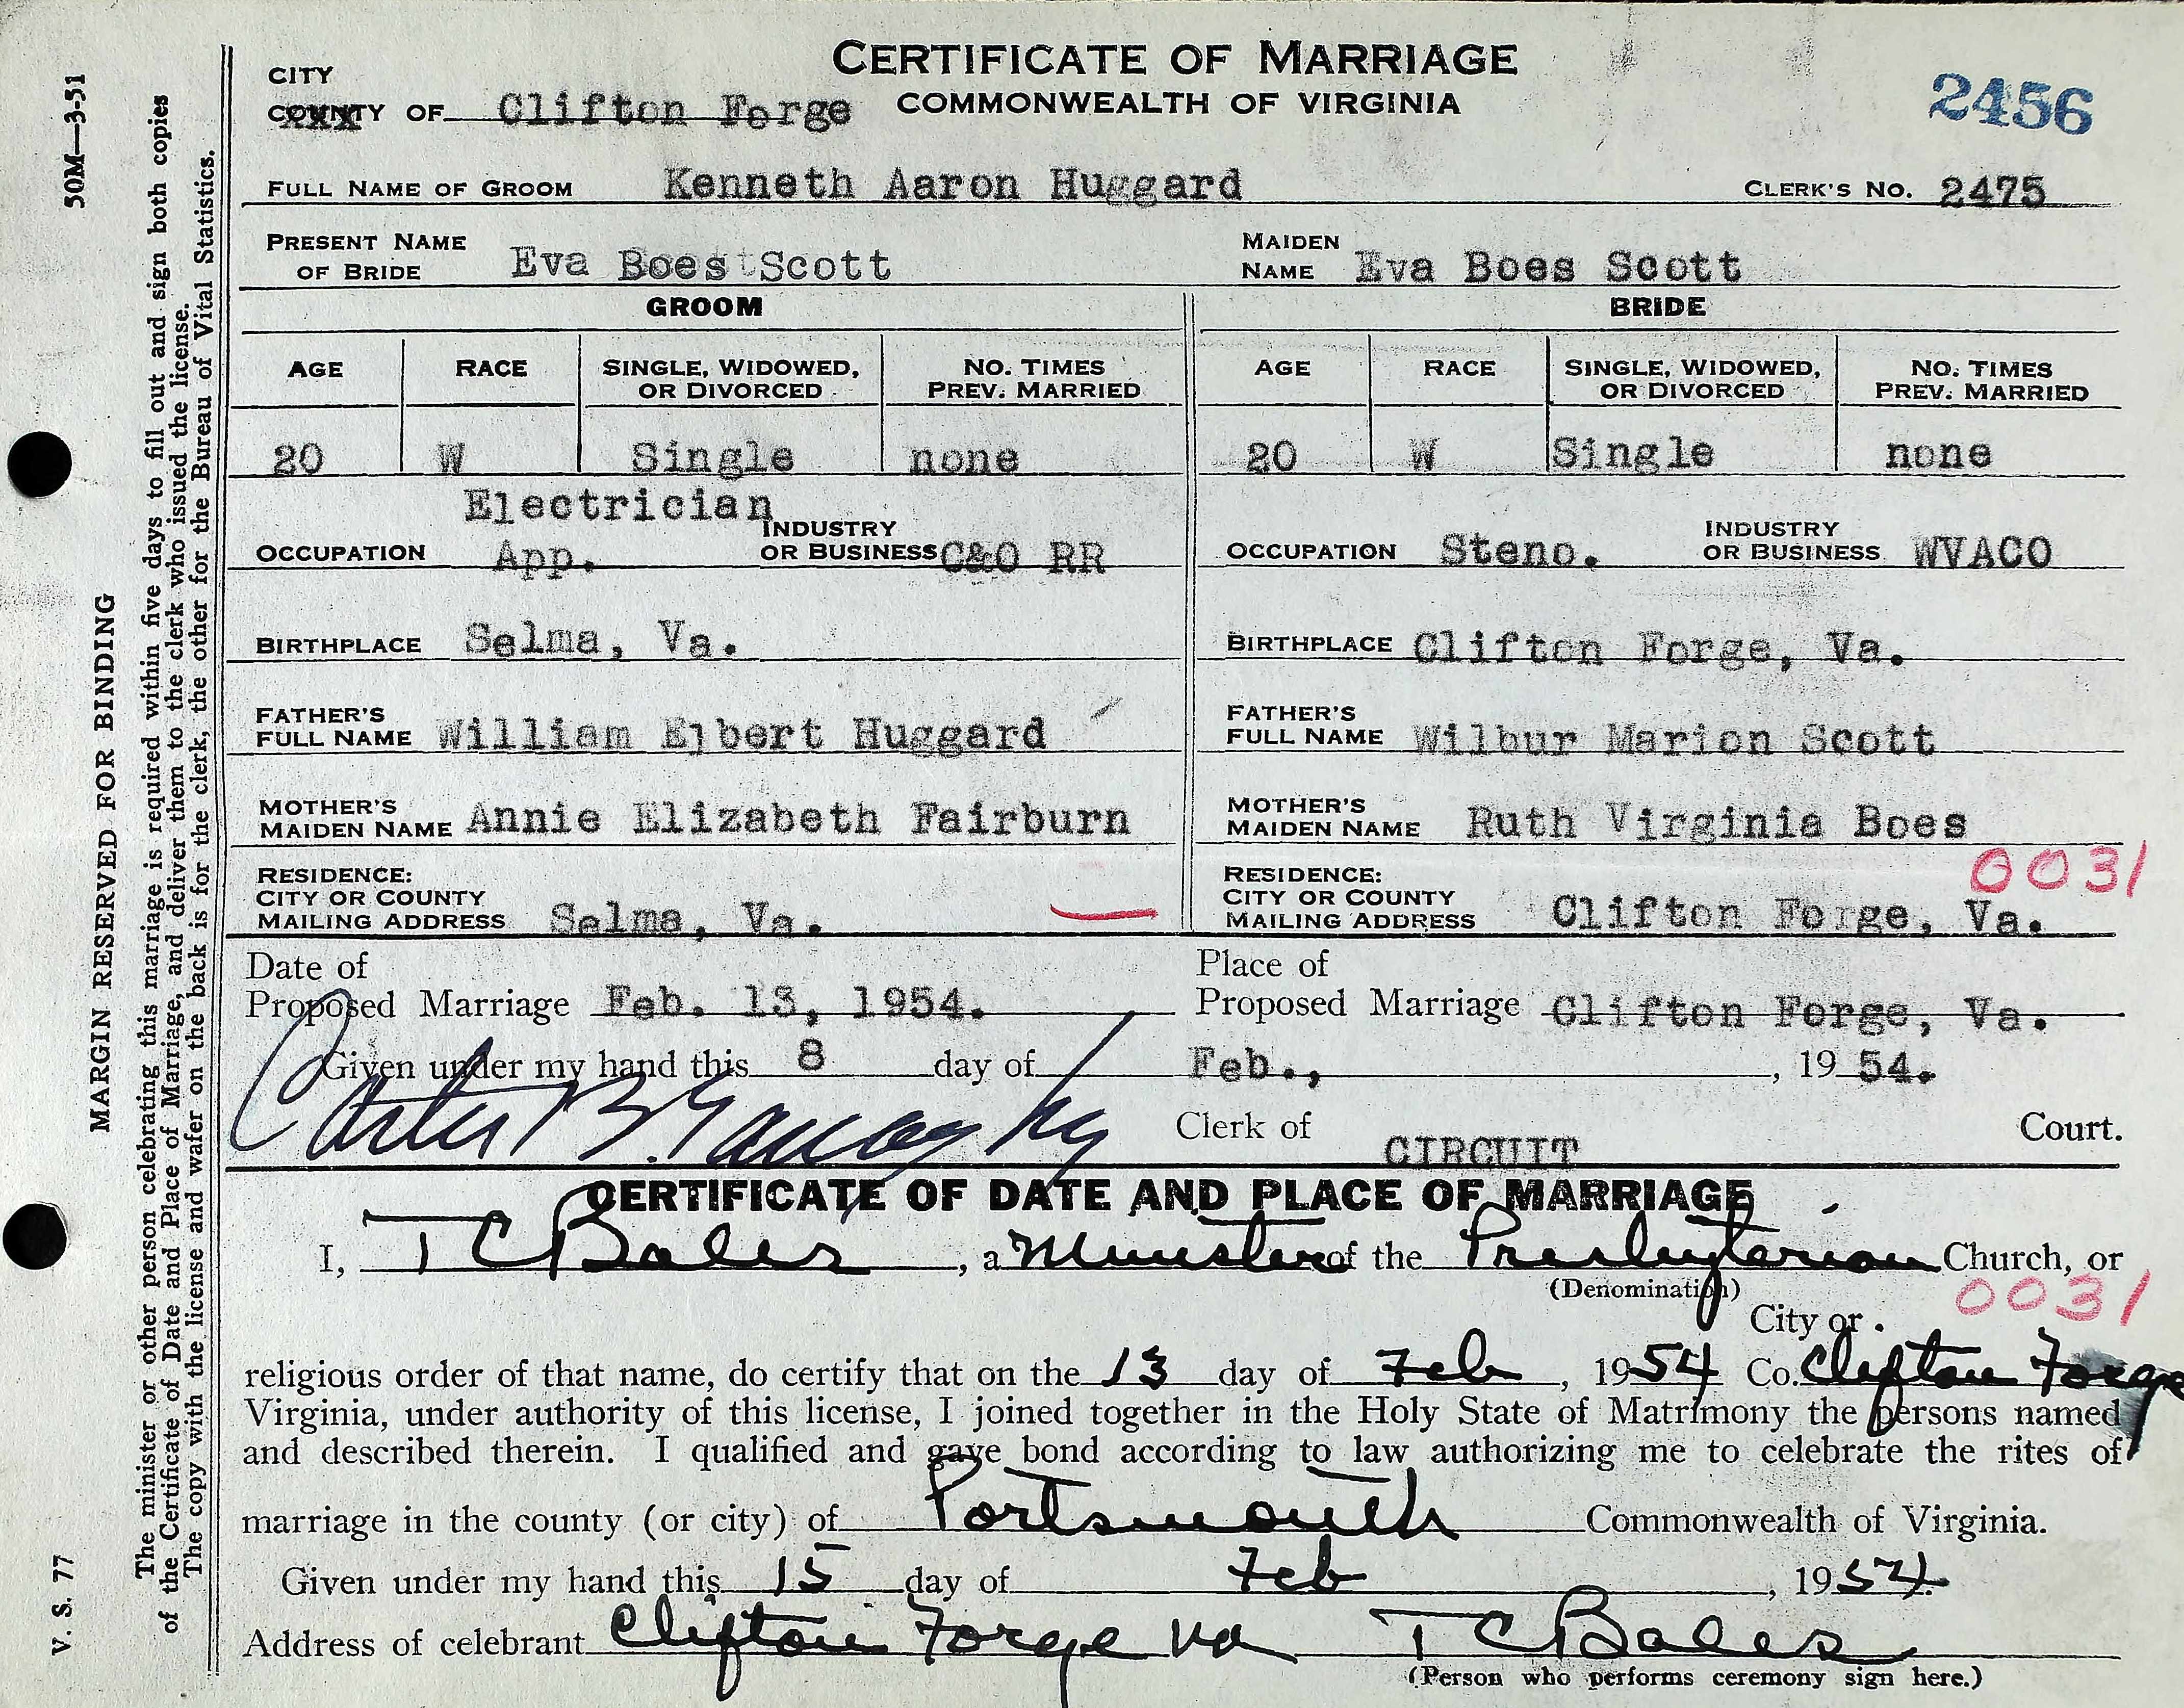 CERTIFICATE OF MARRIAGE
CITY
COUNTY OF Clifton Forge COMMONWEALTH OF VIRGINIA 2456
FULL NAME OF GROOM Kenneth Aaron Huggard CLERK'S NO. 2475
PRESENT NAME OF BRIDE Eva Boes Scott MAIDEN NAME Eva Boes Scott
GROOM BRIDE
AGE RACE SINGLE, WIDOWED, OR DIVORCED NO. TIMES PREV. MARRIED AGE RACE SINGLE, WIDOWED, OR DIVORCED NO. TIMES PREV. MARRIED
20 W Single none 20 W Single none
OCCUPATION Electrician App. INDUSTRY OR BUSINESS C&O RR OCCUPATION Steno. INDUSTRY OR BUSINESS WVACO
BIRTHPLACE Selma, Va. BIRTHPLACE Clifton Forge, Va.
FATHER'S FULL NAME William Elbert Huggard FATHER'S FULL NAME Wilbur Marion Scott
MOTHER'S MAIDEN NAME Annie Elizabeth Fairburn MOTHER'S MAIDEN NAME Ruth Virginia Boes
0031
RESIDENCE: CITY OR COUNTY MAILING ADDRESS Selma, Va. RESIDENCE: CITY OR COUNTY MAILING ADDRESS Clifton Forge, Va.
Date of Proposed Marriage Feb. 13, 1954. Place of Proposed Marriage Clifton Forge, Va.
Given under my hand this 8 day of Feb., , 19 54.
Carter B. Clerk of CIRCUIT Court.
CERTIFICATE OF DATE AND PLACE OF MARRIAGE
I, T C Bales , a Minister of the Presbyterian Church, or
(Denomination)
City or 0031
religious order of that name, do certify that on the 13 day of Feb , 1954 Co. Clifton Forge
Virginia, under authority of this license, I joined together in the Holy State of Matrimony the persons named
and described therein. I qualified and gave bond according to law authorizing me to celebrate the rites of
marriage in the county (or city) of Portsmouth Commonwealth of Virginia.
Given under my hand this 15 day of Feb , 1954.
Address of celebrant Clifton Forge Va T C Bales
(Person who performs ceremony sign here.)
50M—3-51
MARGIN RESERVED FOR BINDING
V. S. 77
The minister or other person celebrating this marriage is required within five days to fill out and sign both copies
of the Certificate of Date and Place of Marriage, and deliver them to the clerk who issued the license.
The copy with the license and wafer on the back is for the clerk, the other for the Bureau of Vital Statistics.